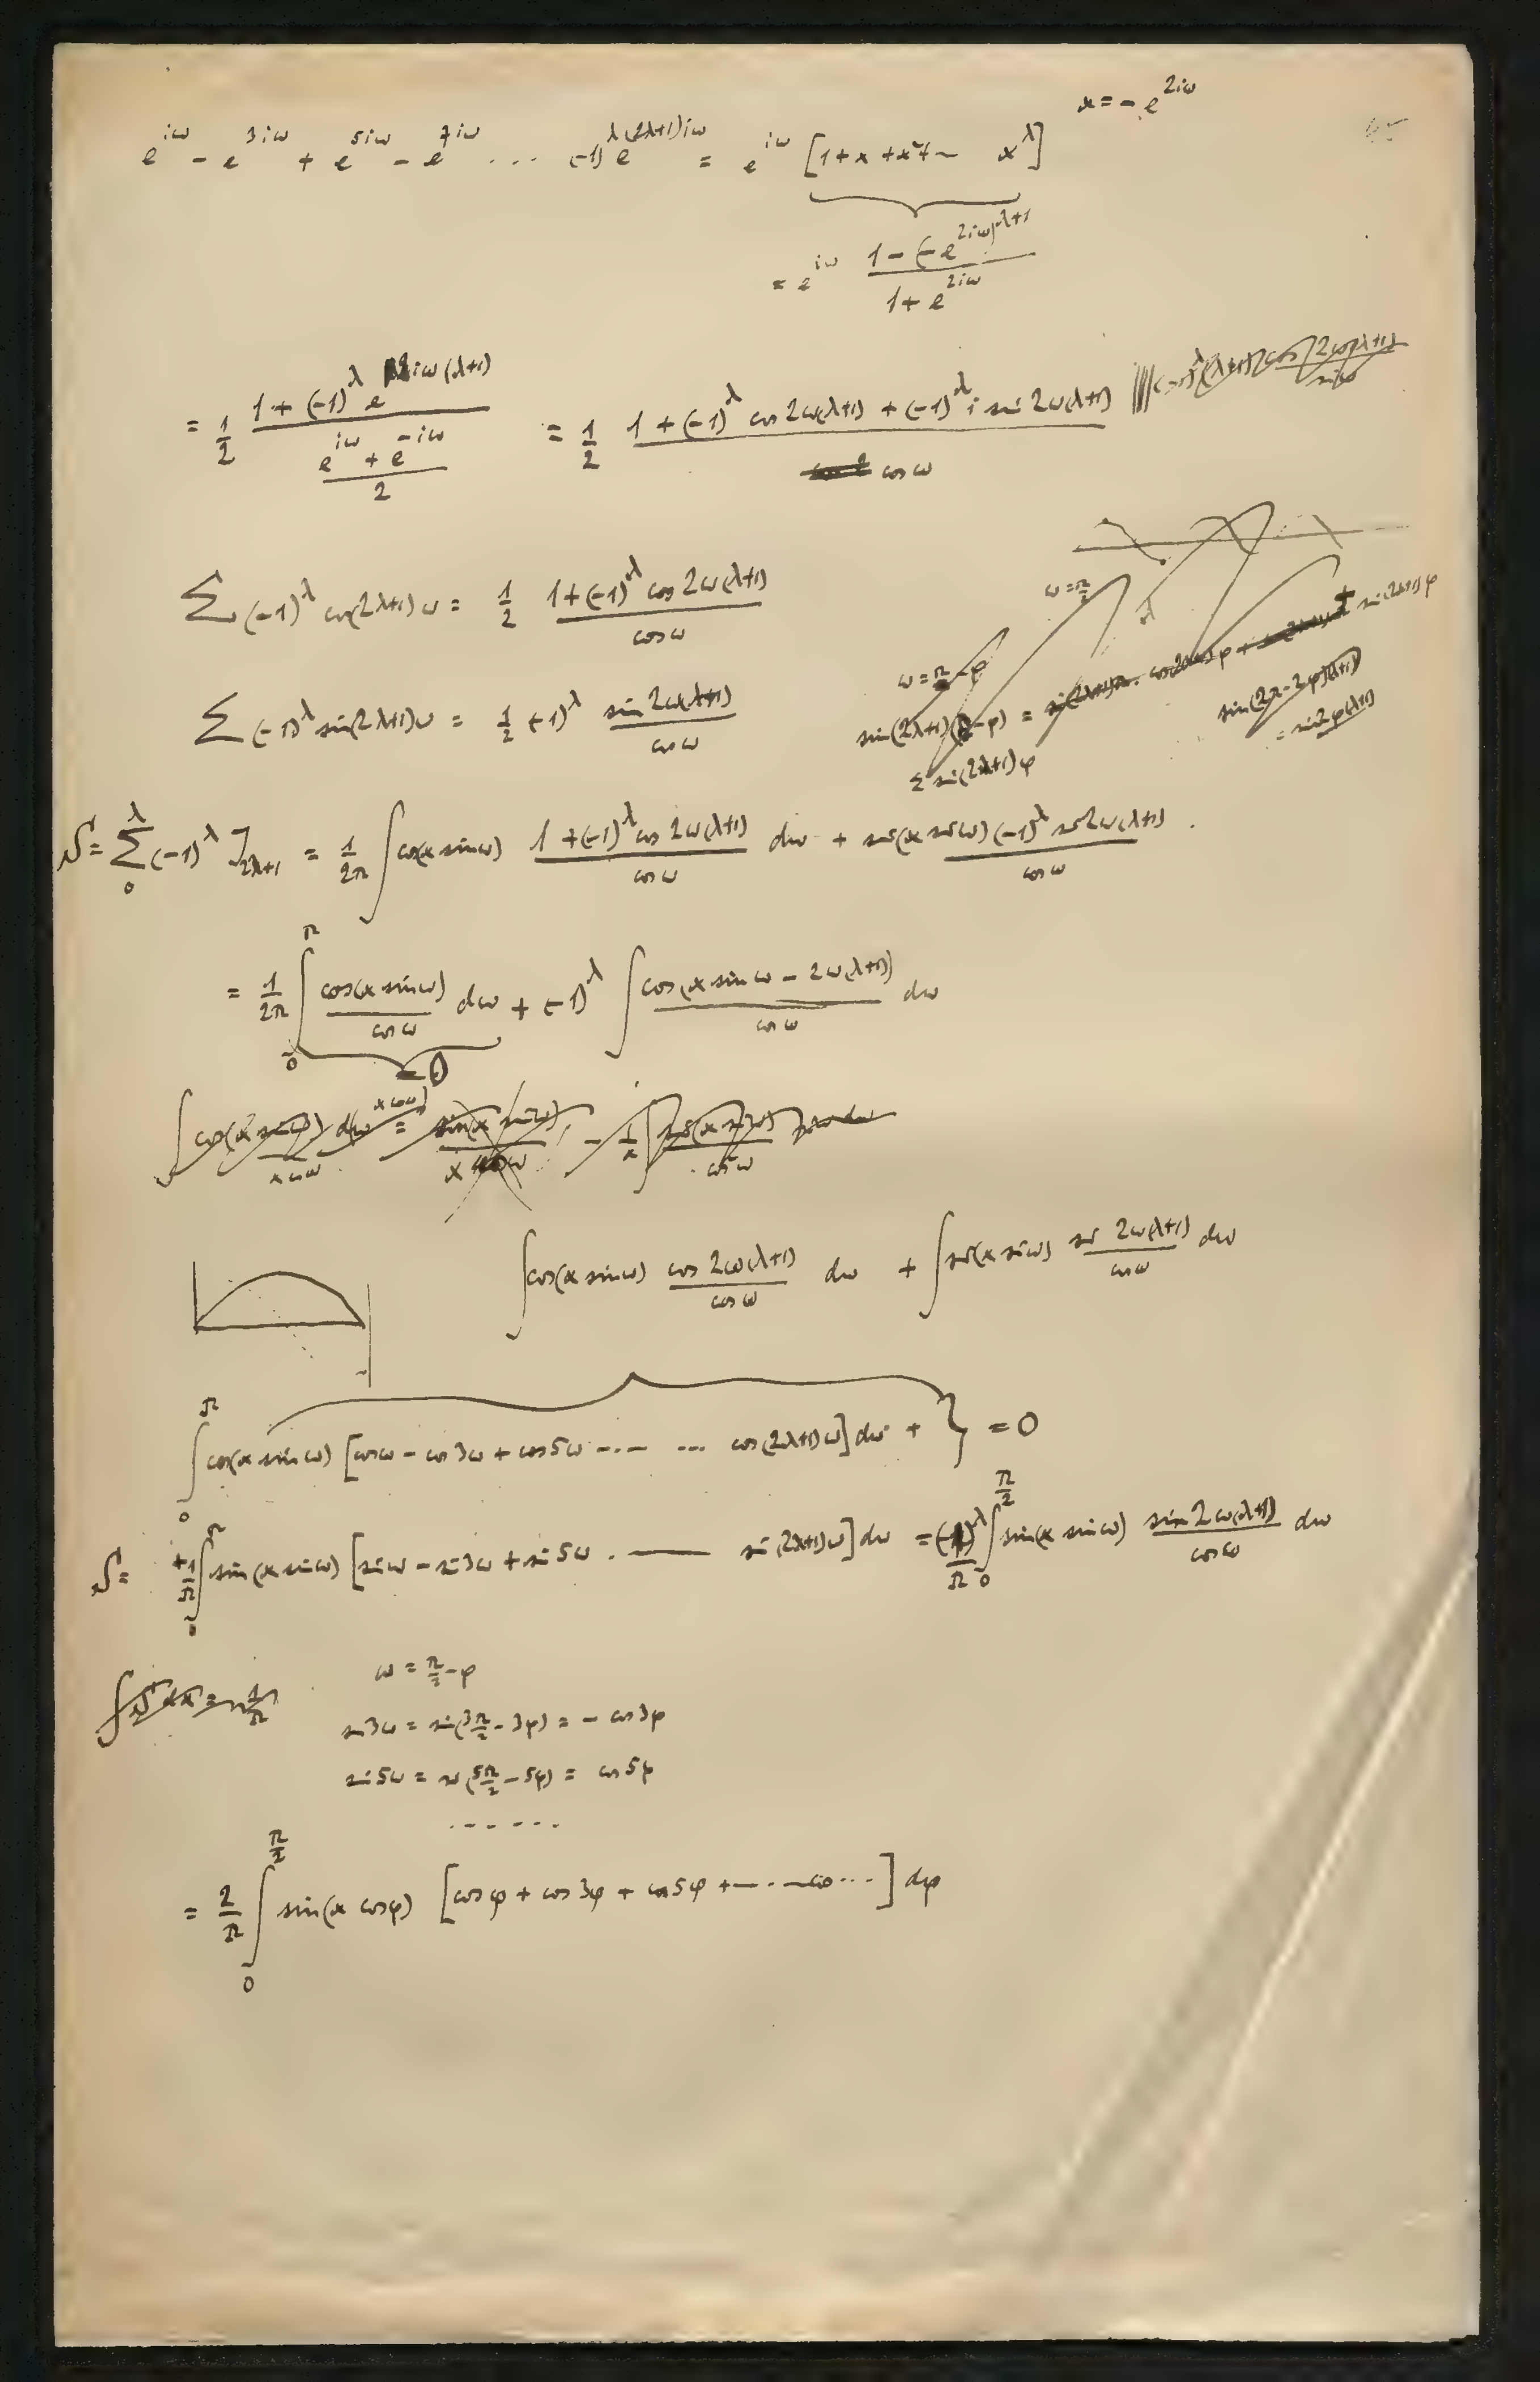 x = - e^{2iω}
e^{iω} - e^{3iω} + e^{5iω} - e^{7iω} ... (-1)^λ e^{(2λ+1)iω} = e^{iω} [1 + x + x² + - x^λ]
= e^{iω} \frac{1 - (-e^{2iω})^{λ+1}}{1 + e^{2iω}}
= \frac{1}{2} \frac{1 + (-1)^λ e^{2iω(λ+1)}}{\frac{e^{iω} + e^{-iω}}{2}} = \frac{1}{2} \frac{1 + (-1)^λ cos 2ω(λ+1) + (-1)^λ i sin 2ω(λ+1)}{cos ω}
∑ (-1)^λ cos(2λ+1)ω = \frac{1}{2} \frac{1 + (-1)^λ cos 2ω(λ+1)}{cos ω}
ω = \frac{π}{2}
∑ (-1)^λ sin(2λ+1)ω = \frac{1}{2} (-1)^λ \frac{sin 2ω(λ+1)}{cos ω}
ω = π - φ
sin(2λ+1)(π-φ) = sin(2λ+1)φ
sin(2π-2φ)(λ+1)
= sin 2φ(λ+1)
∑ sin(2λ+1)φ
S = ∑_0^λ (-1)^λ J_{2λ+1} = \frac{1}{2π} ∫ cos(x sin ω) \frac{1 + (-1)^λ cos 2ω(λ+1)}{cos ω} dω + sin(x sin ω) \frac{(-1)^λ sin 2ω(λ+1)}{cos ω} .
= \frac{1}{2π} ∫_0^π \frac{cos(x sin ω)}{cos ω} dω + (-1)^λ ∫ \frac{cos(x sin ω - 2ω(λ+1))}{cos ω} dω
= 0
∫ cos(x sin ω) \frac{cos 2ω(λ+1)}{cos ω} dω + ∫ sin(x sin ω) \frac{sin 2ω(λ+1)}{cos ω} dω
∫_0^π cos(x sin ω) [cos ω - cos 3ω + cos 5ω -.-- ... cos(2λ+1)ω] dω + } = 0
S = + \frac{1}{π} ∫_0^π sin(x sin ω) [sin ω - sin 3ω + sin 5ω . —— sin(2λ+1)ω] dω = \frac{(-1)^λ}{π} ∫_0^{\frac{π}{2}} sin(x sin ω) \frac{sin 2ω(λ+1)}{cos ω} dω
ω = \frac{π}{2} - φ
∫ S dx = \frac{1}{π}
sin 3ω = sin(\frac{3π}{2} - 3φ) = - cos 3φ
sin 5ω = sin(\frac{5π}{2} - 5φ) = cos 5φ
......
= \frac{2}{π} ∫_0^{\frac{π}{2}} sin(x cos φ) [cos φ + cos 3φ + cos 5φ + -.-cos...] dφ